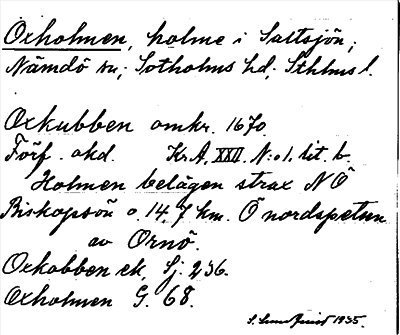 Oxholmen, holme i Saltsjön;
Nämdö sn; Sotholms hd. Sthlms l.
Oxkubben omkr. 1670.
Förf. okd. Kr.A. XXII. N:o 1. lit. b.
Holmen belägen strax NÖ
Biskopsön o. 14,7 km. Ö nordspetsen
av Ornö.
Oxkobben ek. Sj. 236.
Oxholmen G. 68.
1935.